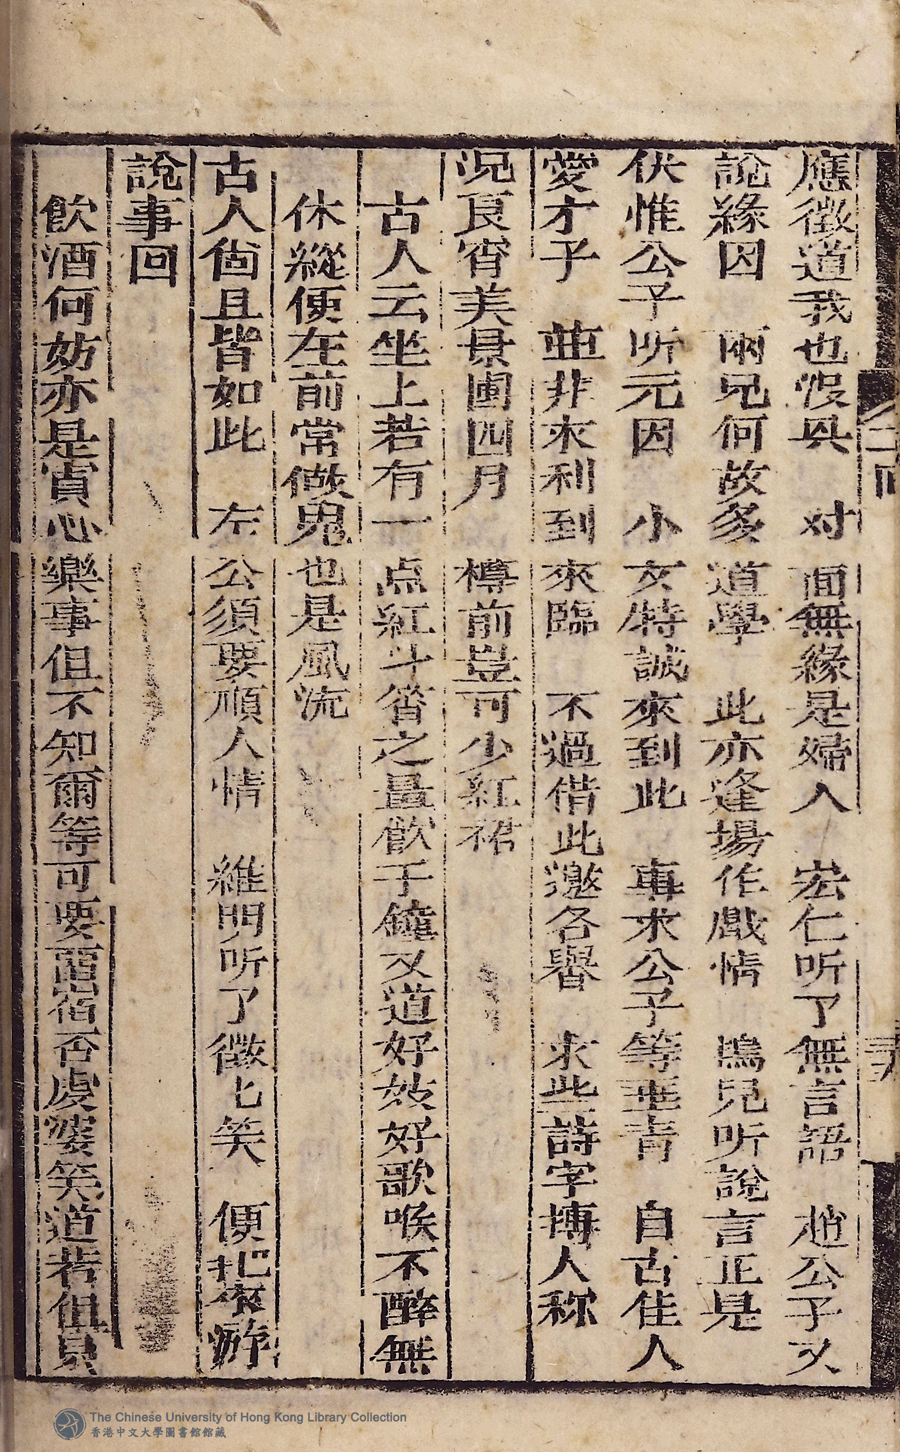 應徵道我也沒奂 对面無緣是婦人 宏仁听了無言語 趙公子又
說緣因 兩兄何故多道學 此亦逢塲作戲情 鴇兒听說言正是
伏惟公子听元因 小女特誠來到此 專求公子等垂青 自古佳人
愛才子 並非來利到來臨 不過借此邀各譽 求些詩字摶人称
况良宵美景圍四月 樽前豈可少紅裙
古人云坐上若有一点紅斗筲之量飲千鐘又道好妓好歌喉不醉無
休縱便在前常做鬼也是風流
古人尙且皆如此 左公須要順人情 維明听了微匕笑 便把來游
說事回
飲酒何妨亦是賞心樂事但不知爾等可要畱宿否虔婆笑道若但具
二回
The Chinese University of Hong Kong Library Collection
香港中文大學圖書館館藏